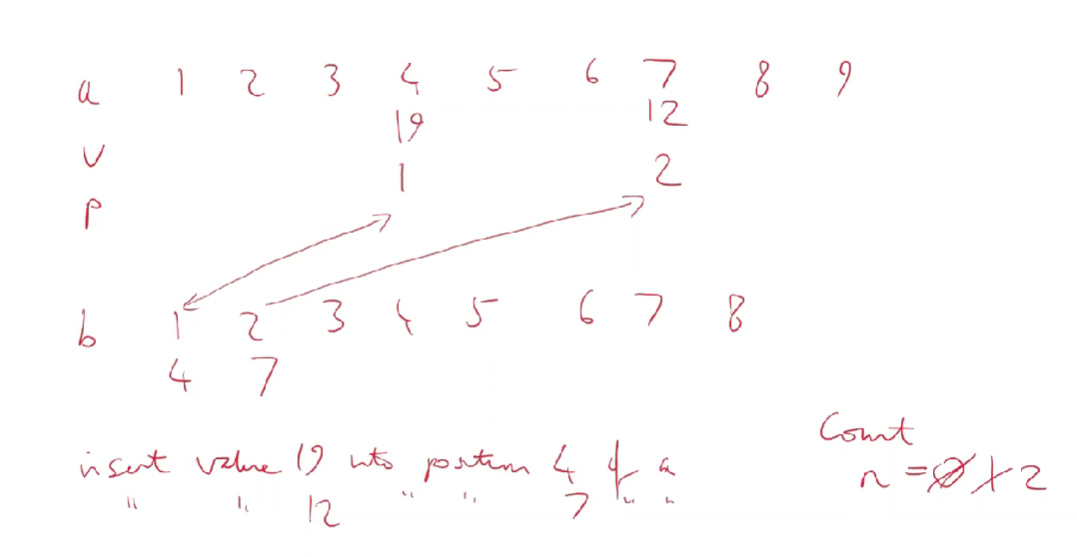 a 1 2 3 4 5 6 7 8 9
19 12
v
1 2
p
b 1 2 3 4 5 6 7 8
4 7
insert value 19 into position 4 of a
" " 12 " " 7 " "
Count
n = 0 1 2